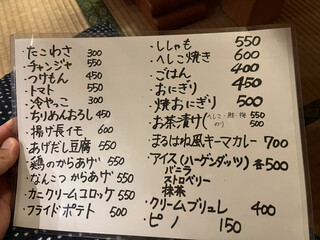 ・たこわさ 300
・チャンジャ 550
・つけもん 450
・トマト 550
・冷やっこ 300
・ちりめんおろし 450
・揚げ長イモ 600
・あげだし豆腐 550
・鶏のからあげ 550
・なんこつからあげ 550
・カニクリームコロッケ 550
・フライドポテト 500
・ししゃも 550
・へしこ焼き 600
・ごはん 400
・おにぎり 450
・焼おにぎり 500
・お茶漬け(へしこ・鮭・梅 550
のり 500
・まるはね風キーマカレー 700
・アイス(ハーゲンダッツ) 各500
バニラ
ストロベリー
抹茶
・クリームブリュレ 400
・ピノ 150